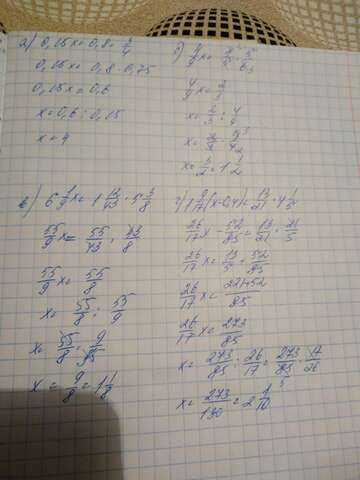 а) 0,15x = 0,8 · 3/4
0,15x = 0,8 · 0,75
0,15x = 0,6
x = 0,6 : 0,15
x = 4
4/9 x = 2/3
x = 2/3 : 4/9
x = 3/2 = 1 1/2
в) 6 1/9 x = 1 12/43 · 5 3/8
55/9 x = 55/43 · 43/8
55/9 x = 55/8
x = 55/8 : 55/9
x = 55/8 · 9/55
x = 9/8 = 1 1/8
г) 1 9/17 (x - 0,4) = 13/21 · 4 1/5
26/17 x - 52/85 = 13/21 · 21/5
26/17 x = 13/5 + 52/85
26/17 x = 221+52/85
26/17 x = 273/85
x = 273/85 : 26/17 = 273/85 · 17/26
x = 273/130 = 2 1/10